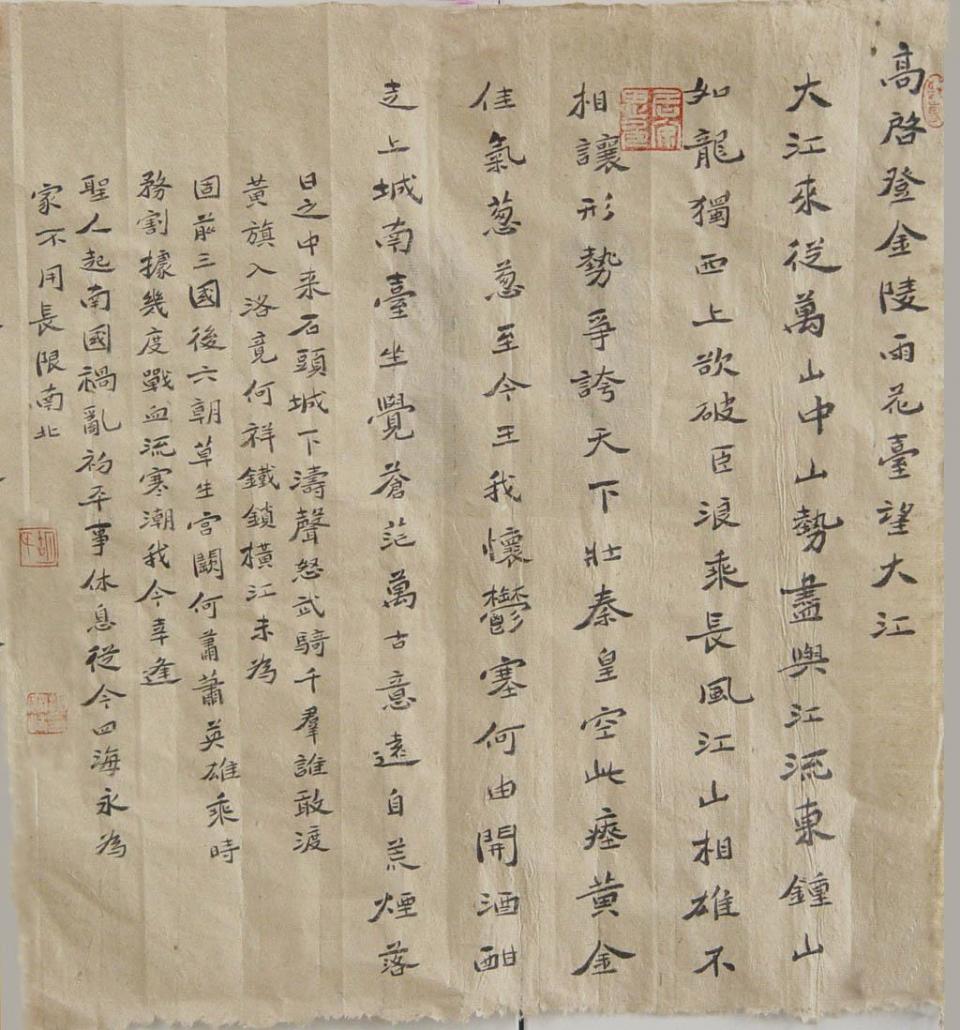 高啓登金陵雨花臺望大江
大江來從萬山中山勢盡與江流東鍾山
如龍獨西上欲破臣浪乘長風江山相雄不
相讓形勢爭誇天下壯秦皇空此瘞黄金
佳氣葱葱至今王我懷鬱塞何由開酒酣
走上城南臺坐覺蒼茫萬古意遠自荒煙落
日之中来石頭城下濤聲怒武騎千羣誰敢渡
黄旗入洛竟何祥鐵鎖橫江未為
固前三國後六朝草生宮闕何蕭蕭英雄乘時
務割據幾度戰血流寒潮我今幸逢
聖人起南國禍亂初平事休息從今四海永為
家不用長限南北